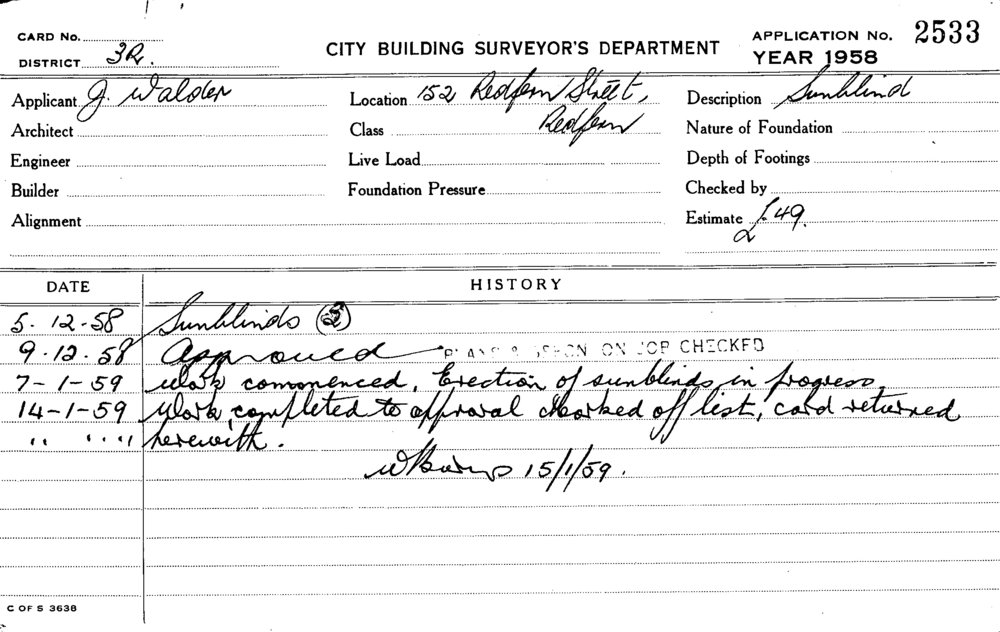 CARD No.
DISTRICT 3R.
CITY BUILDING SURVEYOR'S DEPARTMENT
APPLICATION No. 2533
YEAR 1958
Applicant J. Walder
Location 152 Redfern Street,
Redfern
Description Sunblind
Architect
Class
Nature of Foundation
Engineer
Live Load
Depth of Footings
Builder
Foundation Pressure
Checked by
Alignment
Estimate £49.
2
DATE HISTORY
5.12.58 Sunblinds (2)
9.12.58 Approved PLANS & SPECN ON JOB CHECKED
7-1-59 Work commenced, Erection of sunblinds in progress.
14-1-59 Work completed to approval marked off list, card returned
" " " " herewith.
15/1/59.
C OF S 3638